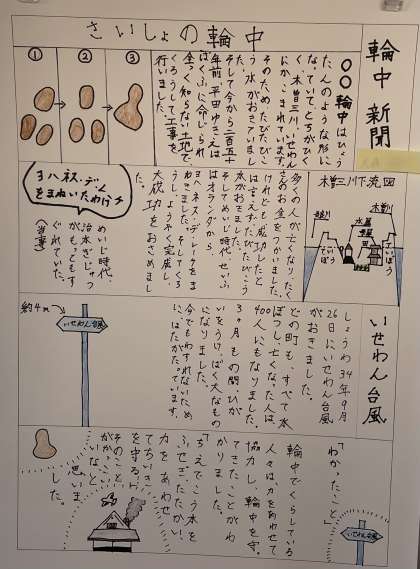 輪中新聞
さいしょの輪中
①
②
③
〇〇輪中はひょう
たんのような形に
なっていて、とちがひく
く、木曽三川、いせわん
にかこまれています。
そのためたびたびこ
う水がおきていまし
た。
そして今から二百五十
年前、平田ゆきえは
ばくふに命じられ
全っく知らない土地で
くろうして工事を
行いました。
木曽三川下流図
木曽川
ていぼう
ていぼう
多くの人が亡くなりたく
さんのお金をつかいました。
けれども成功したと
は言えず、たびたびこう
水がおきました。
そしてめいじ時代、せいふ
はオランダから
ヨハネス・デ・レーケをま
ねきました。そしてくろ
うし、ようやく完成し、
大成功をおさめまし
た。
ヨハネス・デ・レーケ
をまねいたわけ
めいじ時代、
治水ぎじゅつ
がもっともす
ぐれていた。
(当事)
いせわん台風
しょうわ34年9月
26日にいせわん台風
がおきました。
どの町も、すべて水
ぼつし、亡くなった人は
400人にもなりました。
3ヶ月もの間ひが
いをうけ、ばく大なもの
になりました。
今でもわすれないため
に、はたがたっています。
約4m
いせわん台風
「わかったこと」
輪中でくらしている
人々は、力をあわせて
協力し、輪中を守っ
てきたことがわ
かりました。
ちえでこう水を
ふせぎ、たたかい、
力をあわせ
てちいき
を守る。
そのこと
がかっこい
いなと
思いま
した。
いせわん台風